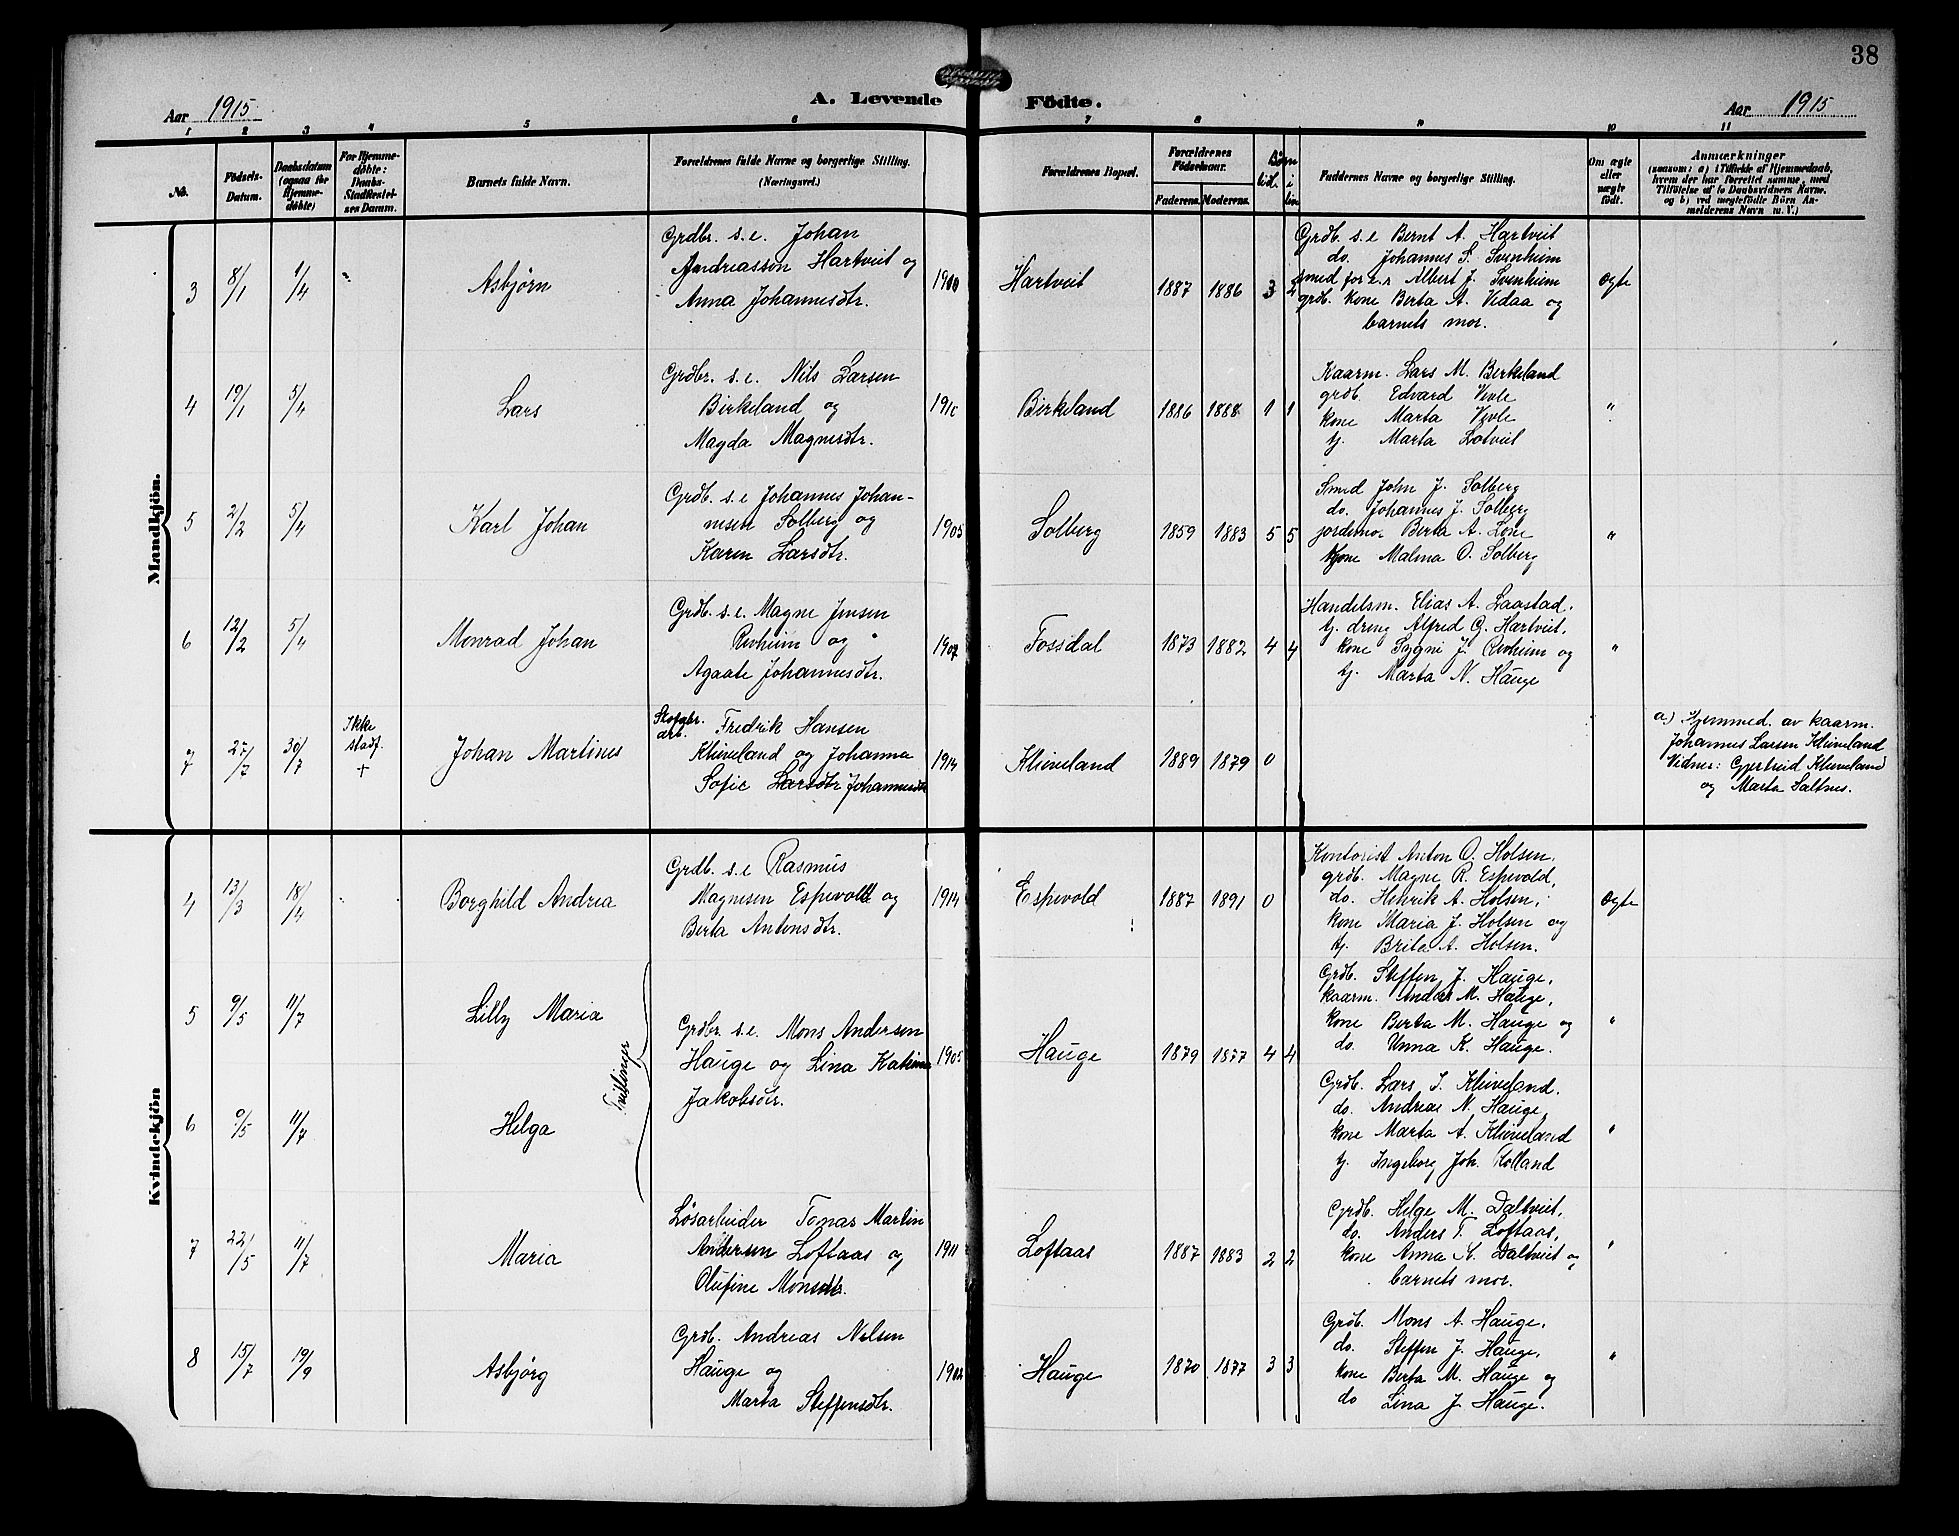 38
Aar 1915
A. Levende Födte.
Aar 1915
1 2 3 4 5 6 7 8 9 10 11
No.
Födsels-
Datum.
Daabsdatum
(ogsaa for
Hjemme-
döbte)
For Hjemme-
döbte:
Daabs-
Stadfæstel-
ses Datum.
Barnets fulde Navn.
Forældrenes fulde Navne og borgerlige Stilling.
(Næringsvei.)
Forældrenes Bopæl.
Forældrenes
Födselsaar.
Faderens. Moderens.
Faddernes Navne og borgerlige Stilling.
Om ægte
eller
uægte
födt.
Anmærkninger
(saasom: a) i Tilfælde af Hjemmedaab,
hvem der har forrettet samme, med
Tilföielse af to Daabsvidners Navne,
og b) ved uægtefödte Börn An-
melderens Navn m. V.)
Mandkjön.
3 8/1 1/4 " Asbjørn
Grdbr. s.e. Johan
Andreassen Hartveit og
Anna Johannesdtr.
1910 Hartveit 1887 1886 3 2
Grdb. s.e Bernt A. Hartveit
do. Johannes S. Svenheim
smed Albert J. Svenheim
grdb. kone Berta A. Vedaa og
barnets mor.
Ægte
4 19/1 5/4 Lars
Grdbr. s.e. Nils Larsen
Birkeland og
Magda Magnesdtr.
Birkeland 1886 1888 1 1
Kaarm. Lars M. Birkeland
grdb. Edvard Vevle
kone Marta Vevle
tj. Marta Lotveit
"
5 2/2 5/4 Karl Johan
Grdb. s.e Johannes Johan-
nesen Solberg og
Karen Larsdtr.
1905 Solberg 1859 1883 5 5
Smed John J. Solberg
do. Johannes J. Solberg
jordemor Berta A. Lone
kone Malena O. Solberg
"
6 12/2 5/4 Monrad Johan
Grdb. s.e. Magne Jensen
Røvheim og
Agaate Johannesdtr.
1907 Fossdal 1873 1882 4 4
Handelsm. Elias A. Laastad.
tj. dreng Alfred G. Hartveit,
kone Sygni J. Røvheim og
tj. Marta N. Hauge
"
7 27/7 30/7 Ikke
stadf.
+
Johan Martines
arb. Fredrik Hansen
Kleiveland og Johanna
Sofie Larsdtr Johannesdtr
1914 Kleiveland 1889 1879 0
a.) Hjemmed. av kaarm.
Johannes Larsen Kleiveland
Vidner: Gjertrid Kleiveland
og Marta Saltnes.
Kvindekjön
4 13/3 18/4 Borghild Andrea
Grdb. s.e Rasmus
Magnesen Espevold og
Berta Antonsdtr.
1914 Espevold 1887 1891 0
Kontorist Anton O. Holsen,
grdb. Magne R. Espevold,
do. Henrik A. Holsen,
kone Maria J. Holsen og
tj. Brita A. Holsen.
Ægte
5 9/5 11/7 Lilly Maria
Tvillinger
Grdbr. s.e. Mons Andersen
Hauge og Lina Katrine
Jakobsdtr.
1905 Hauge 1879 1877 4 4
Grdb. Steffen J. Hauge,
kaarm. Anders M. Hauge,
kone Berta M. Hauge og
do. Unna K. Hauge.
"
6 9/5 11/7 Helga
Grdb. Lars J. Kleiveland.
do. Andreas N. Hauge,
kone Marta A. Kleiveland
tj. Ingeborg Joh. Rolland
"
7 22/5 11/7 Maria
Løsarbeider Tomas Martin
Andersen Loftaas og
Olufine Monsdtr.
1911 Loftaas 1887 1883 2 2
Grdb. Helge M. Daltveit,
do. Anders T. Loftaas,
kone Anna A. Daltveit og
barnets mor.
"
8 15/7 19/9 Asbjørg
Grdb. Andreas Nelsen
Hauge og
Marta Steffensdtr.
1902 Hauge 1870 1877 3 3
Grdb. Mons A. Hauge,
do. Steffen J. Hauge,
kone Berta M. Hauge og
do Lina J. Hauge.
"